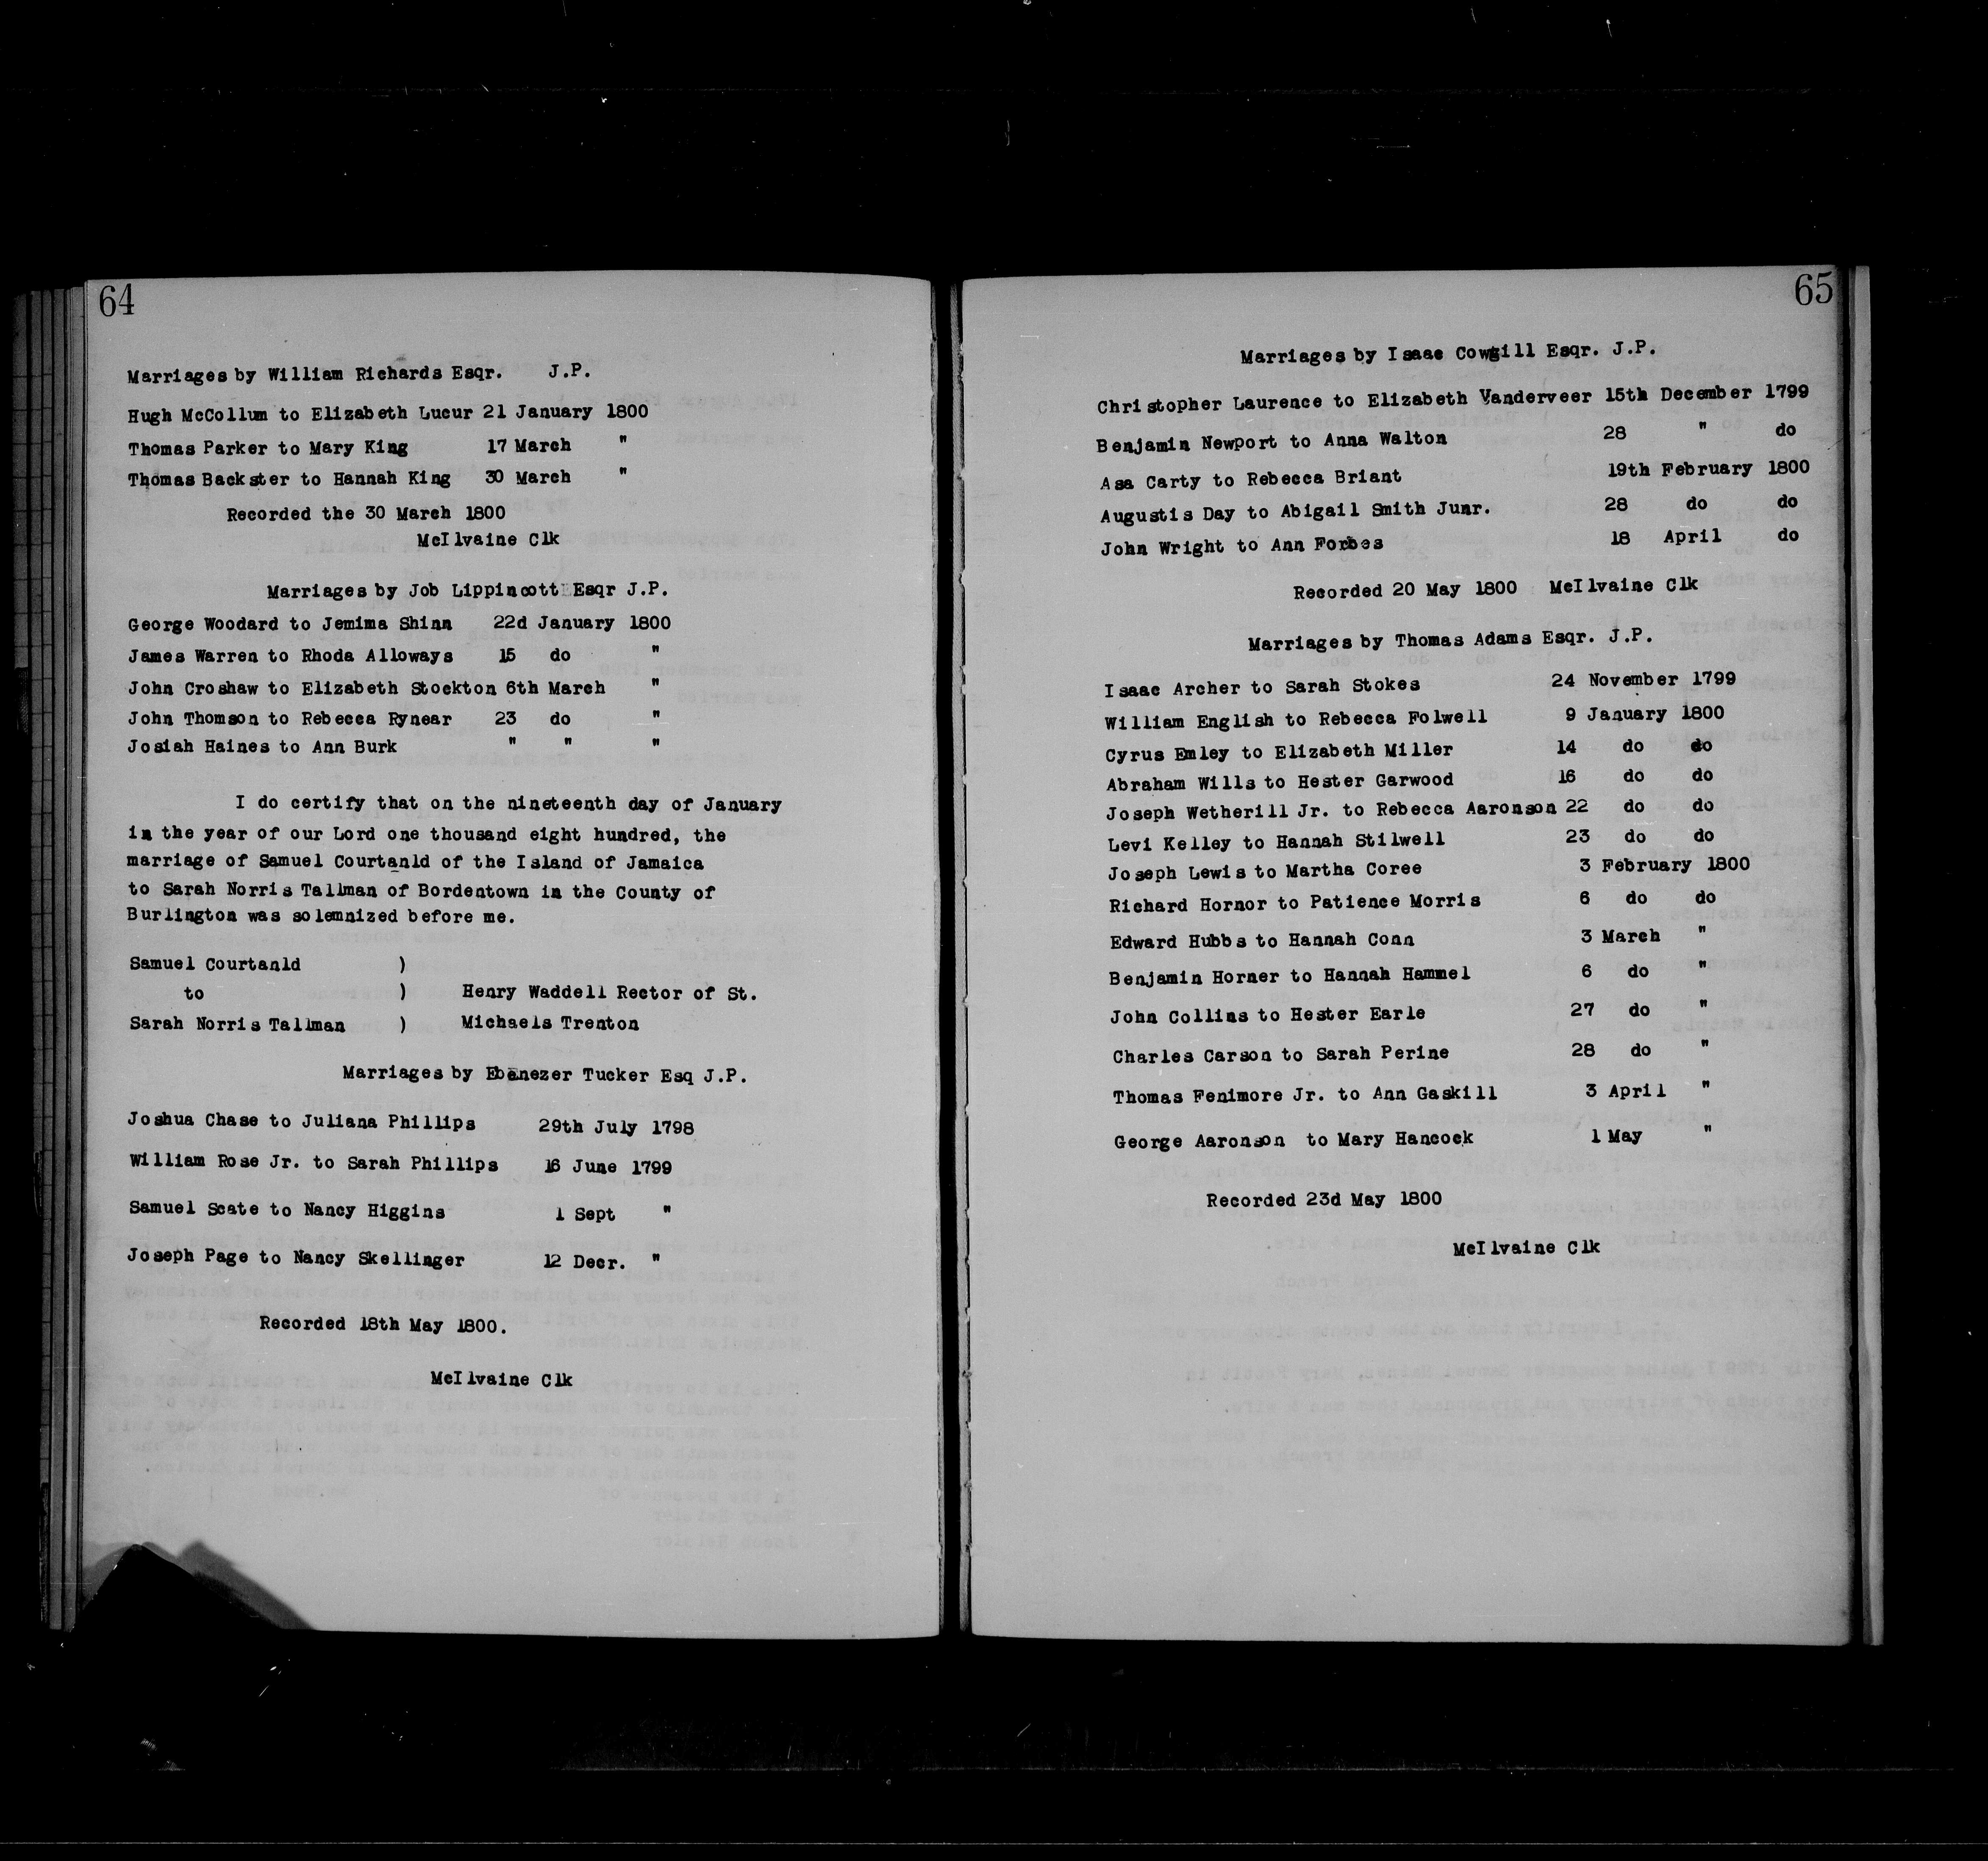 64
Marriages by William Richards Esqr. J.P.
Hugh McCollum to Elizabeth Lucur 21 January 1800
Thomas Parker to Mary King 17 March "
Thomas Backster to Hannah King 30 March "
Recorded the 30 March 1800
McIlvaine Clk
Marriages by Job Lippincott Esqr J.P.
George Woodard to Jemima Shinn 22d January 1800
James Warren to Rhoda Alloways 15 do "
John Croshaw to Elizabeth Stockton 6th March "
John Thomson to Rebecca Rynear 23 do "
Josiah Haines to Ann Burk " " "
I do certify that on the nineteenth day of January
in the year of our Lord one thousand eight hundred, the
marriage of Samuel Courtanld of the Island of Jamaica
to Sarah Norris Tallman of Bordentown in the County of
Burlington was solemnized before me.
Samuel Courtanld )
to ) Henry Waddell Rector of St.
Sarah Norris Tallman ) Michaels Trenton
Marriages by Ebenezer Tucker Esq J.P.
Joshua Chase to Juliana Phillips 29th July 1798
William Rose Jr. to Sarah Phillips 16 June 1799
Samuel Scate to Nancy Higgins 1 Sept "
Joseph Page to Nancy Skellinger 12 Decr. "
Recorded 18th May 1800.
McIlvaine Clk
65
Marriages by Isaac Cowgill Esqr. J.P.
Christopher Laurence to Elizabeth Vanderveer 15th December 1799
Benjamin Newport to Anna Walton 28 " do
Asa Carty to Rebecca Briant 19th February 1800
Augustis Day to Abigail Smith Junr. 28 do do
John Wright to Ann Forbes 18 April do
Recorded 20 May 1800 McIlvaine Clk
Marriages by Thomas Adams Esqr. J.P.
Isaac Archer to Sarah Stokes 24 November 1799
William English to Rebecca Folwell 9 January 1800
Cyrus Emley to Elizabeth Miller 14 do do
Abraham Wills to Hester Garwood 16 do do
Joseph Wetherill Jr. to Rebecca Aaronson 22 do do
Levi Kelley to Hannah Stilwell 23 do do
Joseph Lewis to Martha Coree 3 February 1800
Richard Hornor to Patience Morris 6 do do
Edward Hubbs to Hannah Conn 3 March "
Benjamin Horner to Hannah Hammel 6 do "
John Collins to Hester Earle 27 do "
Charles Carson to Sarah Perine 28 do "
Thomas Fenimore Jr. to Ann Gaskill 3 April "
George Aaronson to Mary Hancock 1 May "
Recorded 23d May 1800
McIlvaine Clk